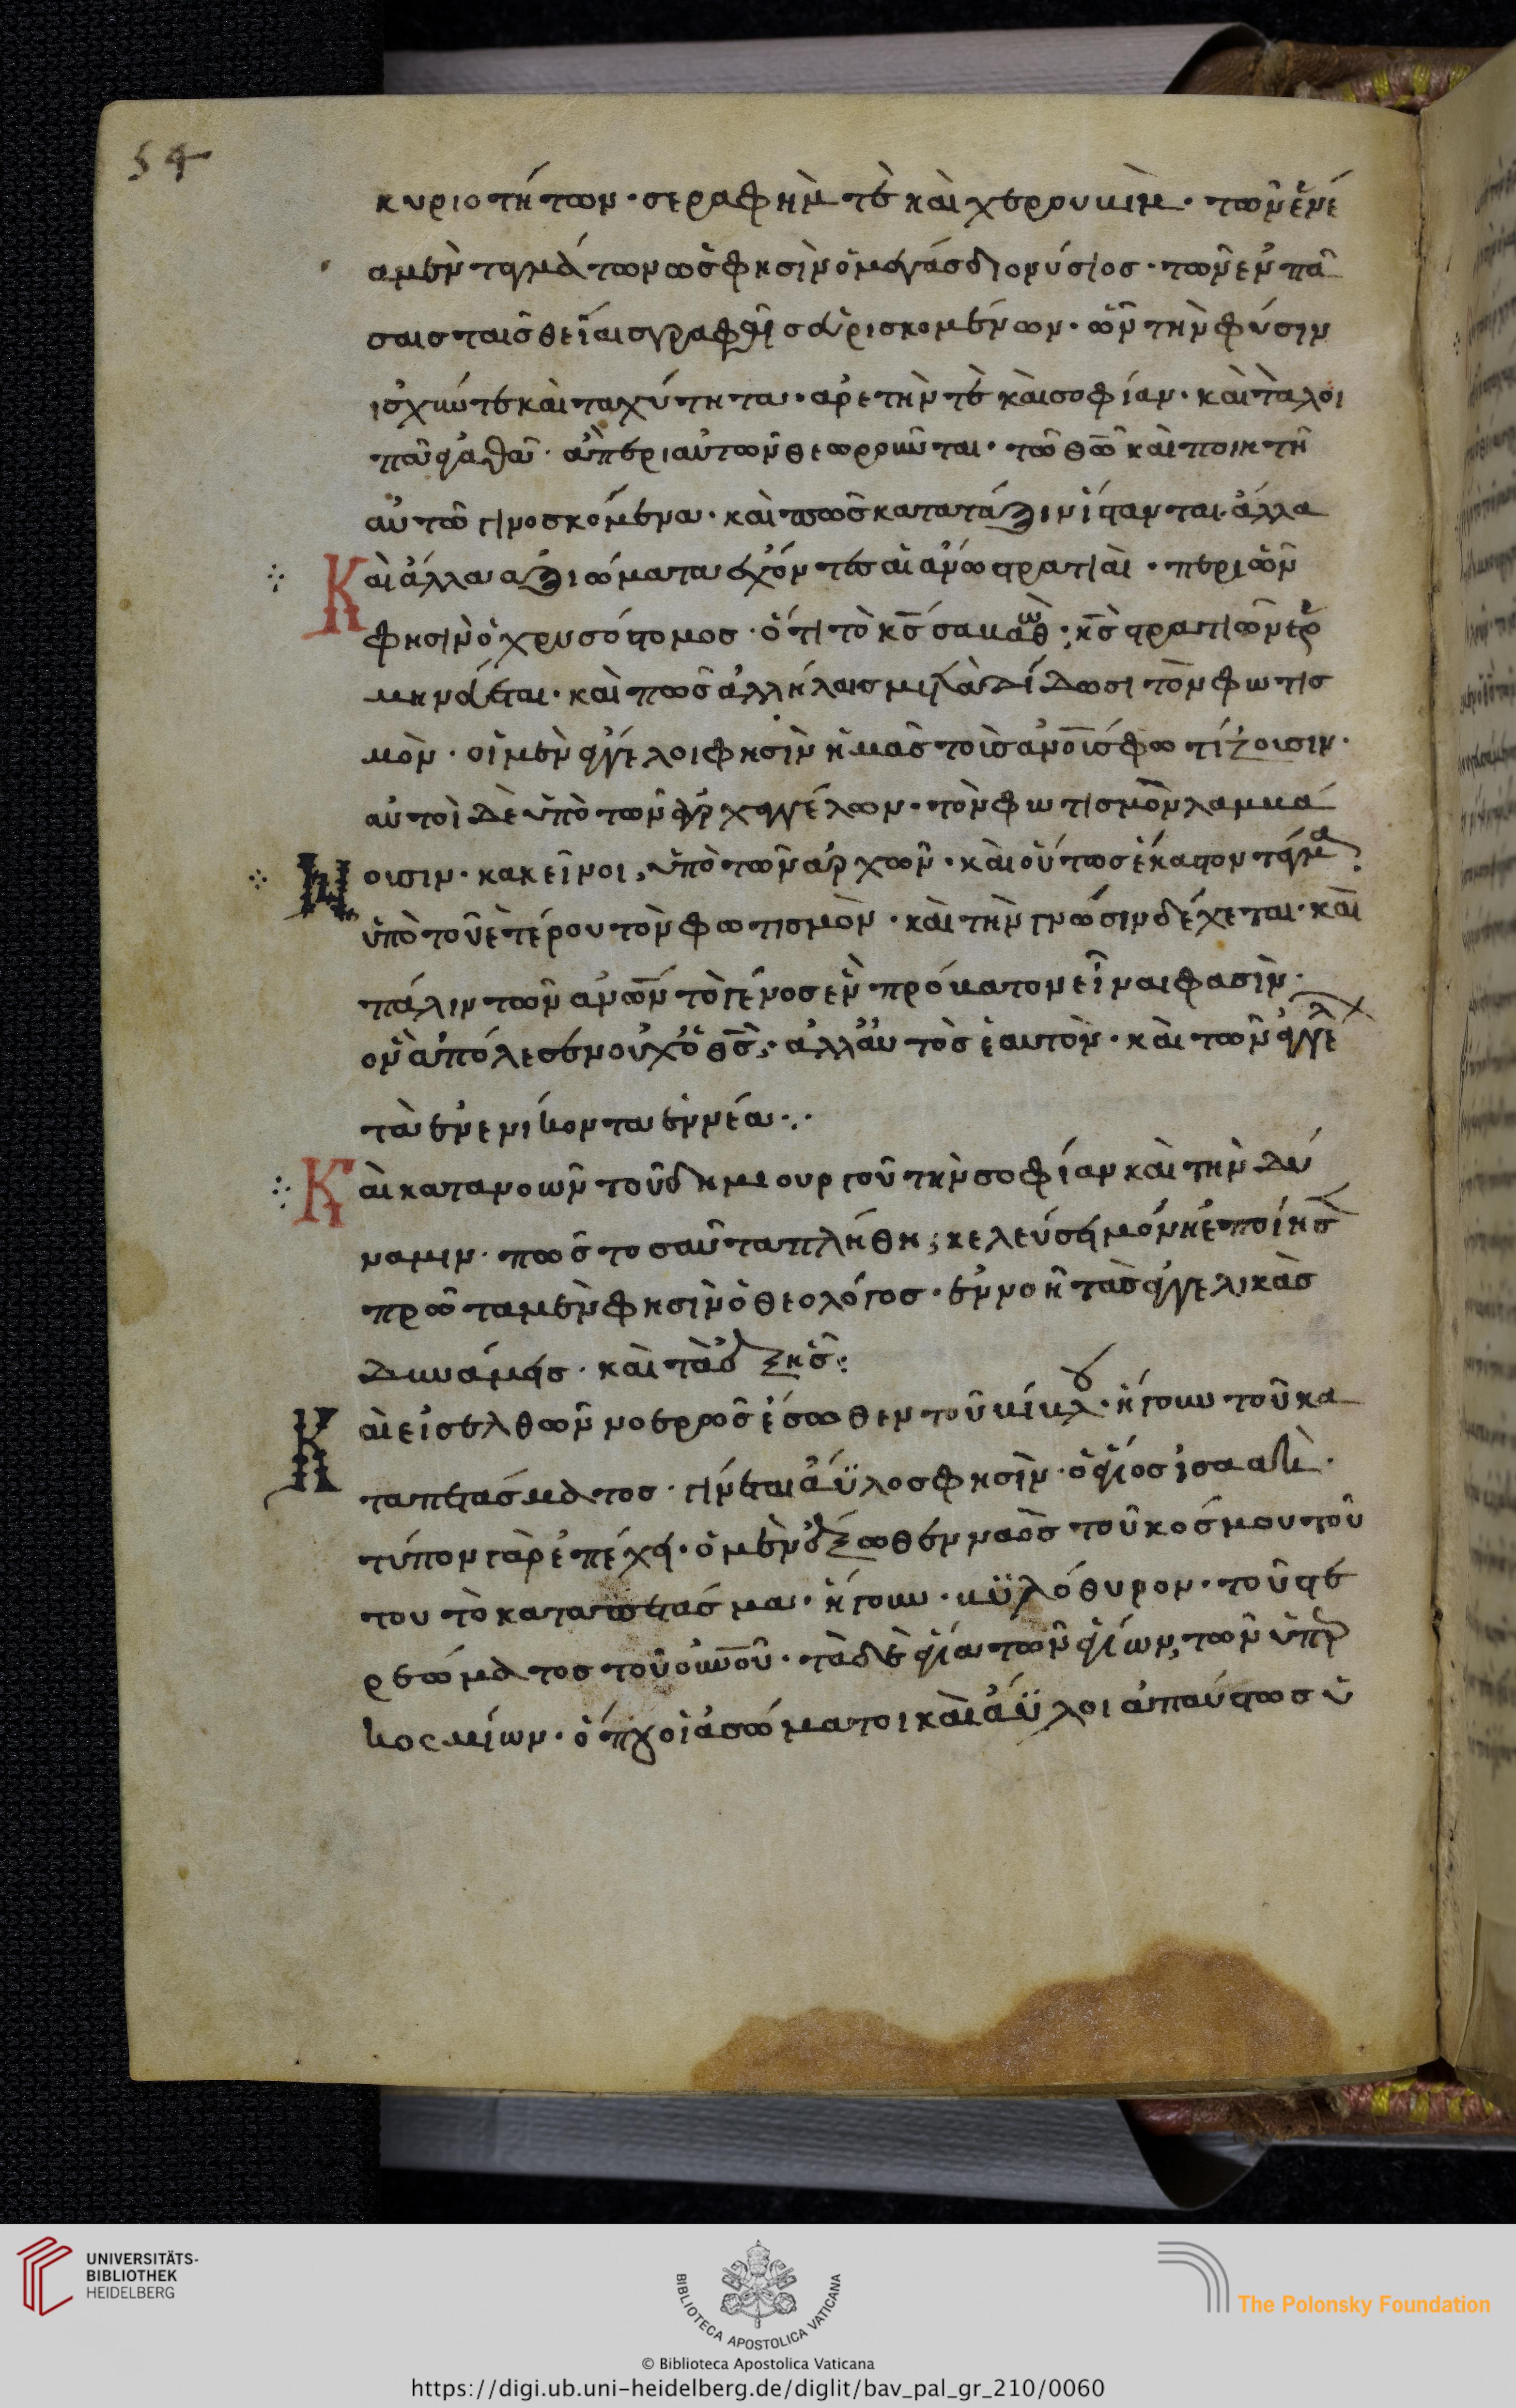 54
κυριοτήτων · σεραφὴμ τὲ καὶ χερουβὶμ · τῶν ἐννέ
α μὲν ταγμάτων ὡς φησὶν ὁ μέγας διονύσιος · τῶν ἐν πά
σαις ταῖς θείαις γραφαῖς εὑρισκομένων · ὧν τὴν φύσιν
ἰσχύν τε καὶ ταχύτητα · ἀρετὴν τὲ καὶ σοφίαν · καὶ τὰ λοι
πὰ ἀγαθὰ · ἃ περὶ αὐτῶν θεωροῦνται · τῶ θῶ καὶ ποιητῆ
αὐτῶ γινοσκόμενα · καὶ πῶς κατατάξιν ἵστανται · ἄλλα
Καὶ ἄλλα ἀξιώματα ἔχόντες αἱ ἄνω στρατιαὶ · περὶ ὧν
φησὶν ὁ χρυσόστομος · ὅτι τὸ κς σαβαὼθ, κς στρατιῶν ἑρ
μηνεύεται · καὶ πῶς ἀλλήλαις μεταδίδωσι τὸν φωτισ
μὸν · οἱ μὲν ἄγγελοι φησὶν ἡμᾶς τοὺς ἀνους φωτίζουσιν ·
αὐτοὶ δὲ ὑπὸ τῶν ἀρχαγγέλων · τὸν φωτισμὸν λαμβά
Νουσιν · κακεῖνοι, ὑπὸ τῶν ἀρχῶν · καὶ οὕτως ἕκαστον τάγμα
ὑπὸ τοῦ ἑτέρου τὸν φωτισμὸν · καὶ τὴν γνῶσιν δέχεται · καὶ
πάλιν τῶν ἀνων τὸ γένος ἓν πρόβατον εἶναι φασὶν ·
ὃν ἀπόλεσεν οὐχ ὁ θς · ἀλλ' αὐτὸς ἑαυτὸν · καὶ τῶν ἀγγέλ
τὰ ἐνενίκοντα ἐννέα ·.·
Καὶ κατανοῶν τοῦ δημιουργοῦ τὴν σοφίαν καὶ τὴν δύ
ναμιν · πῶς τοσαῦτα πλήθη, κελεύσει μόνη ἐποίησε
πρῶτα μὲν φησὶν ὁ θεολόγος · ἐννοῆ τὰς ἀγγελικὰς
δυνάμεις · καὶ τὰ ἑξῆς :
Καὶ εἰσελθὼν νοερῶς ἔσωθεν τοῦ βίλου · ἤγουν τοῦ κα
ταπετάσματος · γίνεται ἄϋλος φησὶν · ὁ ἅγιος ἰσαὰκ ·
τύπον γὰρ ἐπέχει · ὁ μὲν ἔξωθεν ναὸς τοῦ κόσμου τού
του τὸ καταπέτασμα · ἤγουν · βϋλόθυρον · τοῦ στε
ρεώματος τοῦ οὐνοῦ · τὰ δὲ ἅγια τῶν ἁγίων, τῶν ὑπερ
κοσμίων · ὅπου οἱ ἀσώματοι καὶ ἄϋλοι ἀπαύστως ὑ
UNIVERSITÄTS-
BIBLIOTHEK
HEIDELBERG
BIBLIOTECA APOSTOLICA VATICANA
The Polonsky Foundation
© Biblioteca Apostolica Vaticana
https://digi.ub.uni-heidelberg.de/diglit/bav_pal_gr_210/0060